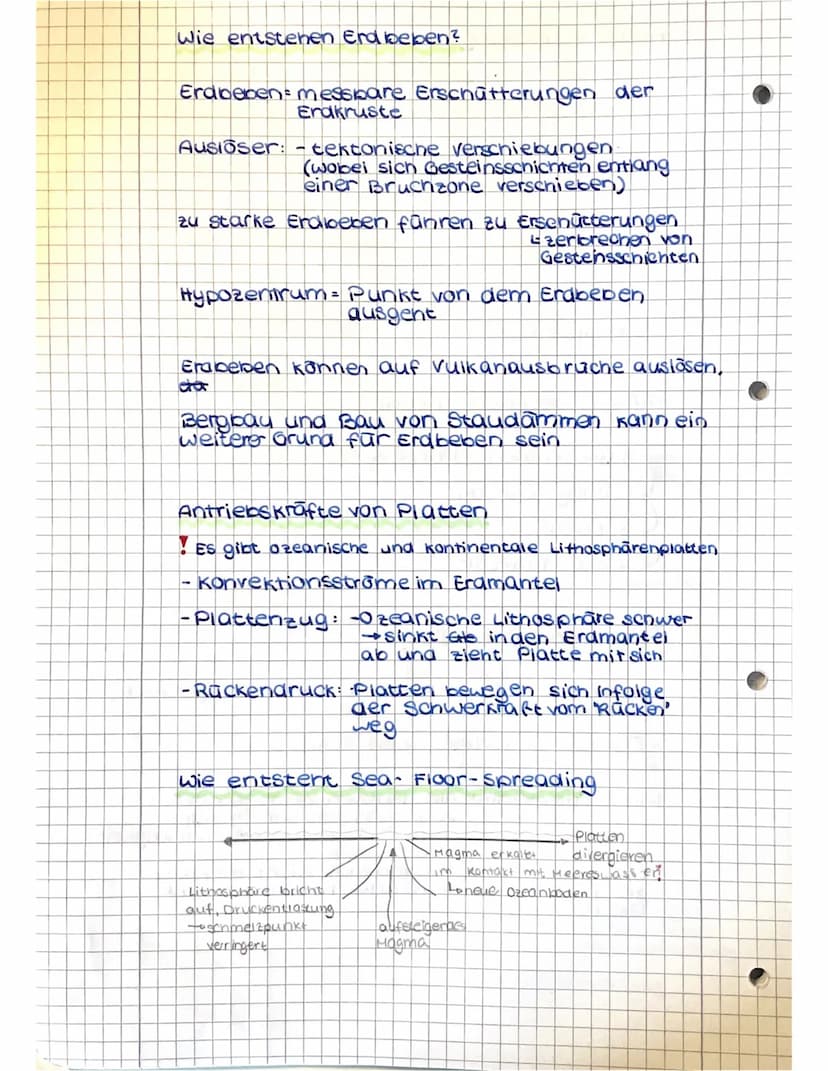 Wie entstehen Erdbeben?
Erdbeben = messbare Erschütterungen der
Erdkruste
Auslöser: - tektonische Verschiebungen
(wobei sich Gesteinsschichten entlang
einer Bruchzone verschieben)
zu starke Erdbeben führen zu Erschütterungen
↳ zerbrechen von
Gesteinsschichten
Hypozentrum = Punkt von dem Erdbeben
ausgeht
Erdbeben können auf Vulkanausbrüche auslösen,
Bergbau und Bau von Staudämmen kann ein
weiterer Grund für Erdbeben sein
Antriebskräfte von Platten
! Es gibt ozeanische und kontinentale Lithosphärenplatten
- Konvektionsströme im Erdmantel
- Plattenzug: - Ozeanische Lithosphäre schwer
→ sinkt in den Erdmantel
ab und zieht Platte mit sich
- Rückendruck: Platten bewegen sich infolge
der Schwerkraft vom "Rücken"
weg
Wie entsteht Sea-Floor-Spreading
Platten
divergieren
Magma erkaltet
im Kontakt mit Meereswasser!
↳ neue Ozeanboden
Lithosphäre bricht
auf, Druckentlastung
→ schmelzpunkt
verringert
aufsteigendes
Magma